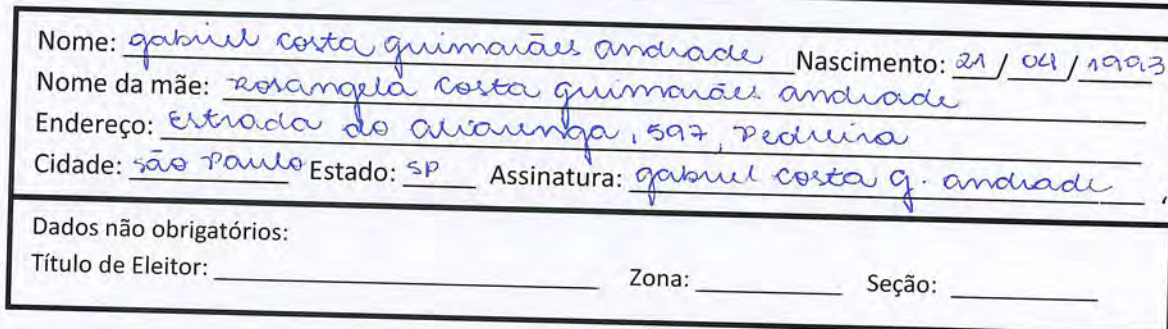 Nome: gabriel costa guimarães andrade Nascimento: 21 / 04 / 1993
Nome da mãe: Rosangela costa guimarães andrade
Endereço: Estrada do alvarenga, 597, Pedreira
Cidade: são Paulo Estado: SP Assinatura: gabriel costa g. andrade
Dados não obrigatórios:
Título de Eleitor: Zona: Seção: